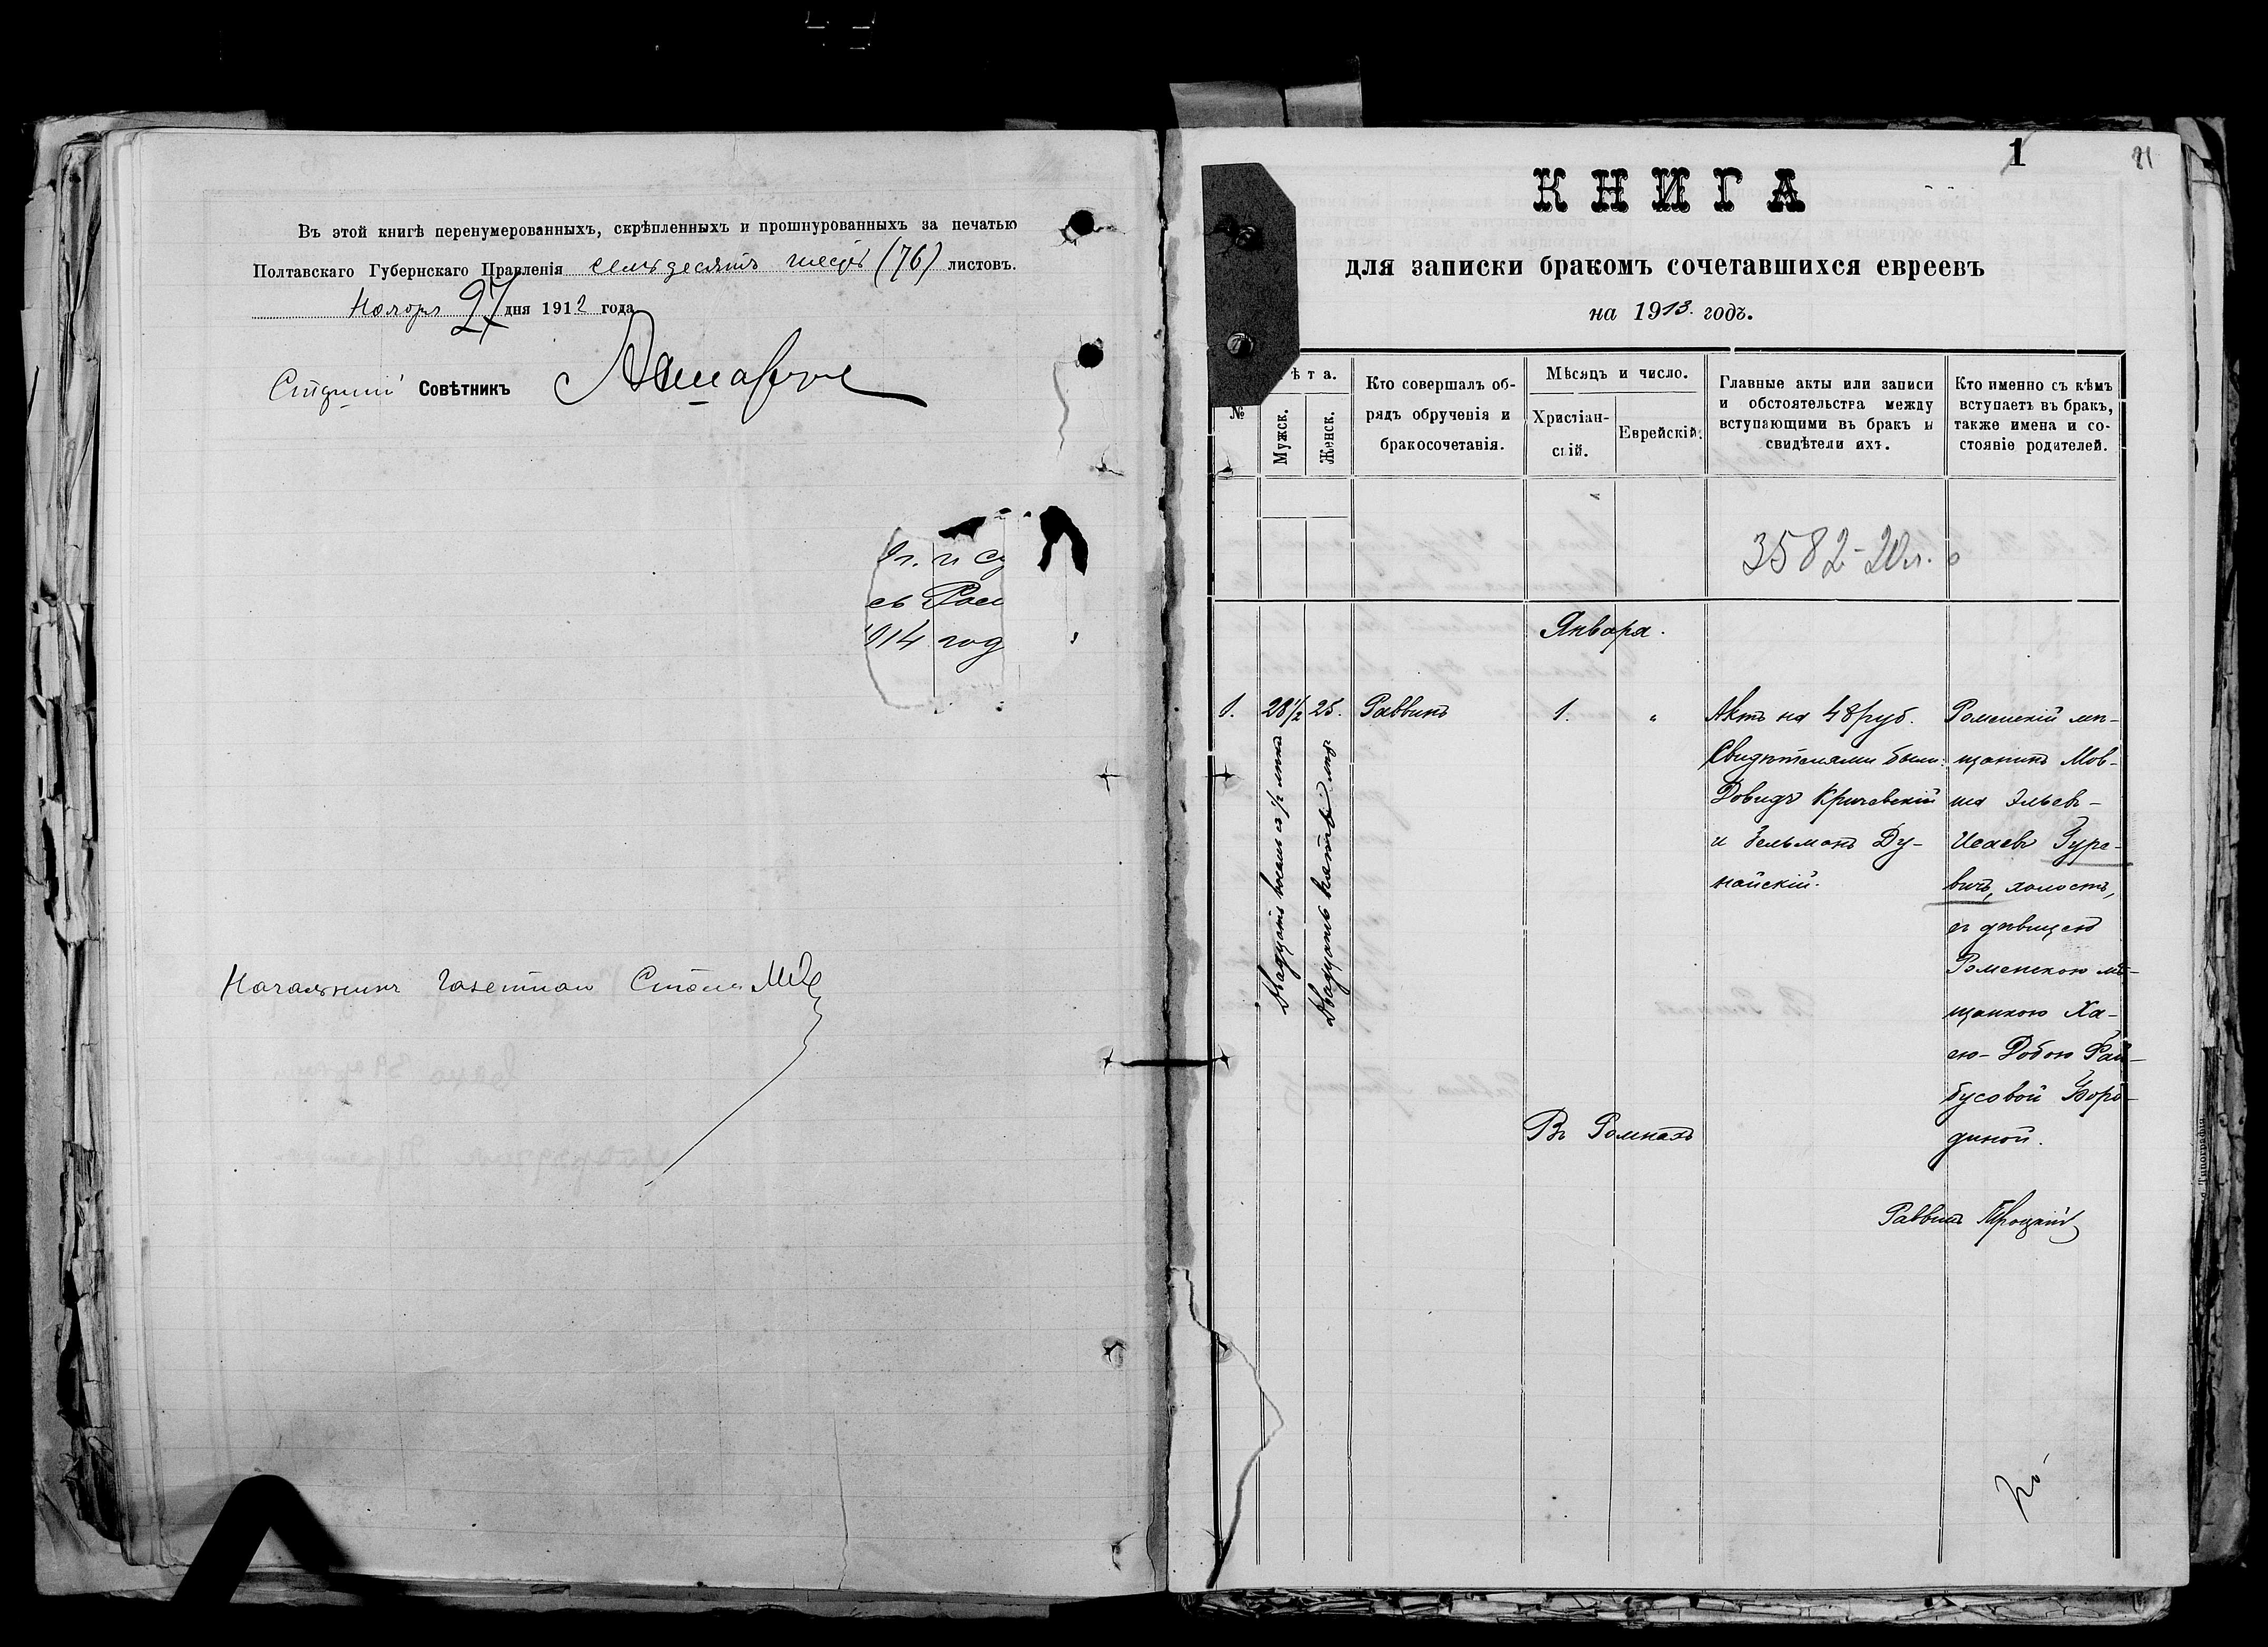 Въ этой книгѣ перенумерованныхъ, скрѣпленныхъ и прошнурованныхъ за печатью
Полтавскаго Губернскаго Правленія семьдесятъ шесть (76) листовъ.
Ноября 27 дня 1912 года
Совѣтникъ
съ
1914 год
Начальникъ Газетнаго Стола
1
81
КНИГА
для записки бракомъ сочетавшихся евреевъ
на 1913. годъ.
№
ѣта.
Мужск.
Женск.
Кто совершалъ об-
рядъ обрученія и
бракосочетанія.
Мѣсяцъ и число.
Христіан-
скій.
Еврейскій.
Главные акты или записи
и обстоятельства между
вступающими въ бракъ и
свидѣтели ихъ.
Кто именно съ кѣмъ
вступаетъ въ бракъ,
также имена и со-
стояніе родителей.
3582-20л.
Января.
1.
28½
Двадцать восемь съ ½ лѣтъ
25.
Двадцать пять лѣтъ
Раввинъ
1.
"
Въ Ромнахъ
Актъ на 48 руб.
Свидѣтелями были:
Довидъ Кричевскій
и Зельманъ Ду-
найскій.
Роменскій мѣ-
щанинъ Мов-
ша Эльевъ-
Исаевъ Гуре-
вичъ, холостъ,
съ дѣвицею
Роменскою мѣ-
щанкою Ха-
ею-Добою Фай-
бусовой Боро-
диной.
Раввинъ Троцкій